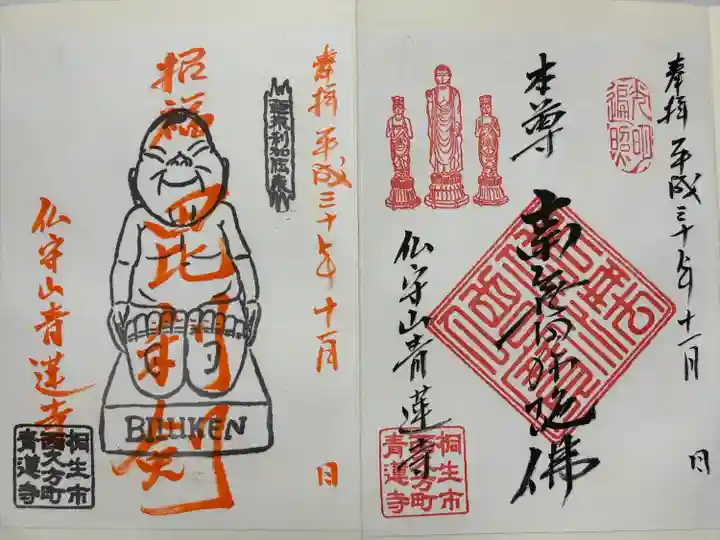 奉拝 平成三十年十一月 日
光明
遍照
本尊
南無阿弥陀佛
仏守山青蓮寺
桐生市
西久方町
青蓮寺
奉拝 平成三十年十一月 日
招福 毘利剣
BILLIKEN
仏守山青蓮寺
桐生市
西久方町
青蓮寺